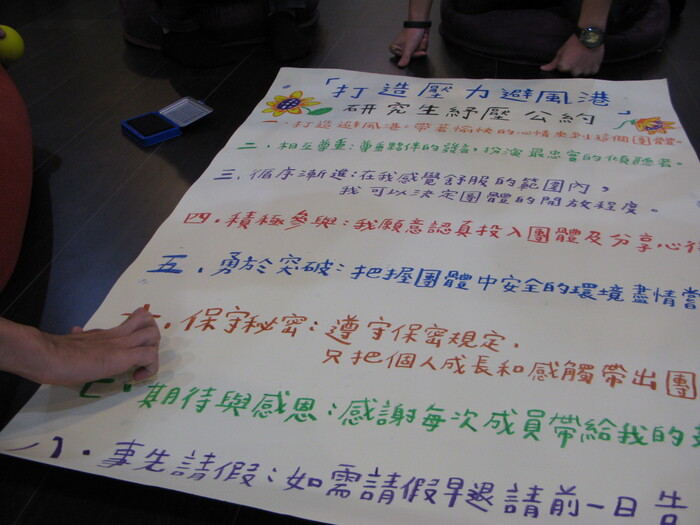 「打造壓力避風港」
研究生紓壓公約
一.打造避風港:帶著愉快的心情來到這個團體。
二、相互尊重:尊重夥伴的發言,扮演最忠實的傾聽者。
三、循序漸進:在我感覺舒服的範圍內,
我可以決定團體的開放程度。
四.積極參與:我願意認真投入團體及分享心得
五、勇於突破:把握團體中安全的環境盡情嘗
六.保守秘密:遵守保密規定.
只把個人成長和感觸帶出團
七.期待與感恩:感謝每次成員帶給我的
八.事先請假:如需請假早退請前一日告